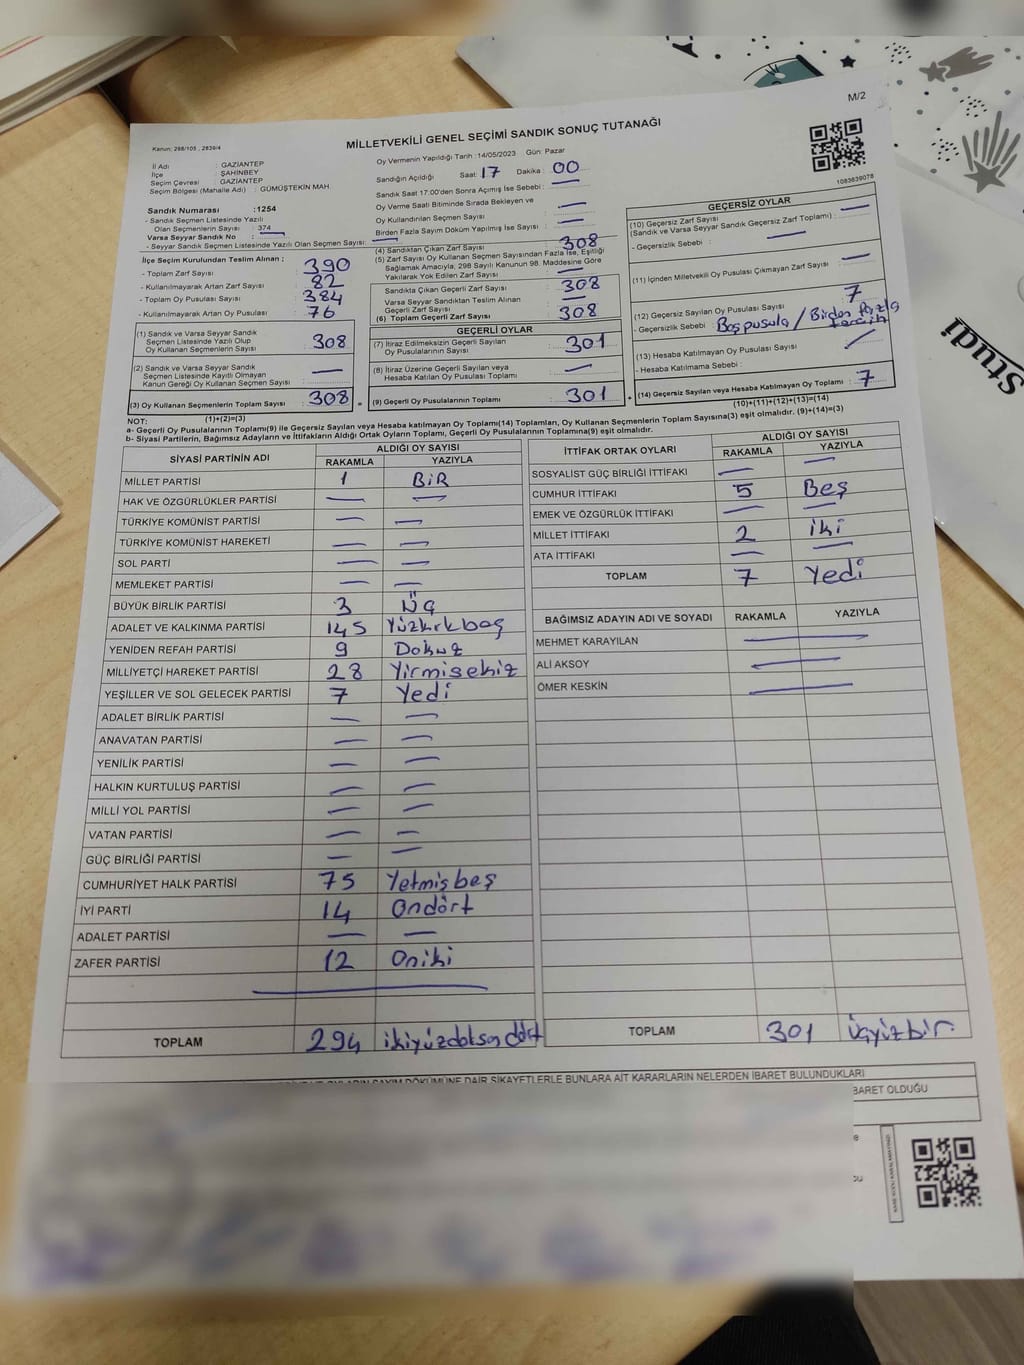 M/2
Kanun: 298/105 , 2839/4
MİLLETVEKİLİ GENEL SEÇİMİ SANDIK SONUÇ TUTANAĞI
1083839078
İl Adı : GAZİANTEP
İlçe : ŞAHİNBEY
Seçim Çevresi : GAZİANTEP
Seçim Bölgesi (Mahalle Adı) : GÜMÜŞTEKİN MAH.
Sandık Numarası :1254
- Sandık Seçmen Listesinde Yazılı
Olan Seçmenlerin Sayısı : 374
Varsa Seyyar Sandık No : —
- Seyyar Sandık Seçmen Listesinde Yazılı Olan Seçmen Sayısı: —
İlçe Seçim Kurulundan Teslim Alınan ;
- Toplam Zarf Sayısı : 390
- Kullanılmayarak Artan Zarf Sayısı : 82
- Toplam Oy Pusulası Sayısı : 384
- Kullanılmayarak Artan Oy Pusulası : 76
(1) Sandık ve Varsa Seyyar Sandık
Seçmen Listesinde Yazılı Olup
Oy Kullanan Seçmenlerin Sayısı : 308
(2) Sandık ve Varsa Seyyar Sandık
Seçmen Listesinde Kayıtlı Olmayan
Kanun Gereği Oy Kullanan Seçmen Sayısı : —
(3) Oy Kullanan Seçmenlerin Toplam Sayısı : 308
(1)+(2)=(3)
Oy Vermenin Yapıldığı Tarih :14/05/2023 Gün: Pazar
Sandığın Açıldığı Saat: 17 Dakika : 00
Sandık Saat 17:00'den Sonra Açımış İse Sebebi : —
Oy Verme Saati Bitiminde Sırada Bekleyen ve
Oy Kullandırılan Seçmen Sayısı : —
Birden Fazla Sayım Döküm Yapılmış İse Sayısı : —
(4) Sandıktan Çıkan Zarf Sayısı : 308
(5) Zarf Sayısı Oy Kullanan Seçmen Sayısından Fazla İse, Eşitliği
Sağlamak Amacıyla, 298 Sayılı Kanunun 98. Maddesine Göre
Yakılarak Yok Edilen Zarf Sayısı : —
Sandıkta Çıkan Geçerli Zarf Sayısı : 308
Varsa Seyyar Sandıktan Teslim Alınan
Geçerli Zarf Sayısı : —
(6) Toplam Geçerli Zarf Sayısı : 308
GEÇERLİ OYLAR
(7) İtiraz Edilmeksizin Geçerli Sayılan
Oy Pusulalarının Sayısı : 301
(8) İtiraz Üzerine Geçerli Sayılan veya
Hesaba Katılan Oy Pusulası Toplamı : —
(9) Geçerli Oy Pusulalarının Toplamı : 301
GEÇERSİZ OYLAR
(10) Geçersiz Zarf Sayısı
(Sandık ve Varsa Seyyar Sandık Geçersiz Zarf Toplamı) : —
- Geçersizlik Sebebi : —
(11) İçinden Milletvekili Oy Pusulası Çıkmayan Zarf Sayısı : —
(12) Geçersiz Sayılan Oy Pusulası Sayısı : 7
- Geçersizlik Sebebi : Boş pusula / Birden Fazla tercih
(13) Hesaba Katılmayan Oy Pusulası Sayısı :
- Hesaba Katılmama Sebebi :
(14) Geçersiz Sayılan veya Hesaba Katılmayan Oy Toplamı : 7
(10)+(11)+(12)+(13)=(14)
NOT:
a- Geçerli Oy Pusulalarının Toplamı(9) ile Geçersiz Sayılan veya Hesaba katılmayan Oy Toplamı(14) Toplamları, Oy Kullanan Seçmenlerin Toplam Sayısına(3) eşit olmalıdır. (9)+(14)=(3)
b- Siyasi Partilerin, Bağımsız Adayların ve İttifakların Aldığı Ortak Oyların Toplamı, Geçerli Oy Pusulalarının Toplamına(9) eşit olmalıdır.
SİYASİ PARTİNİN ADI ALDIĞI OY SAYISI
RAKAMLA YAZIYLA
MİLLET PARTİSİ 1 BİR
HAK VE ÖZGÜRLÜKLER PARTİSİ — —
TÜRKİYE KOMÜNİST PARTİSİ — —
TÜRKİYE KOMÜNİST HAREKETİ — —
SOL PARTİ — —
MEMLEKET PARTİSİ — —
BÜYÜK BİRLİK PARTİSİ 3 Üç
ADALET VE KALKINMA PARTİSİ 145 Yüzkırkbeş
YENİDEN REFAH PARTİSİ 9 Dokuz
MİLLİYETÇİ HAREKET PARTİSİ 28 Yirmisekiz
YEŞİLLER VE SOL GELECEK PARTİSİ 7 Yedi
ADALET BİRLİK PARTİSİ — —
ANAVATAN PARTİSİ — —
YENİLİK PARTİSİ — —
HALKIN KURTULUŞ PARTİSİ — —
MİLLİ YOL PARTİSİ — —
VATAN PARTİSİ — —
GÜÇ BİRLİĞİ PARTİSİ — —
CUMHURİYET HALK PARTİSİ 75 Yetmişbeş
İYİ PARTİ 14 Ondört
ADALET PARTİSİ — —
ZAFER PARTİSİ 12 Oniki
TOPLAM 294 ikiyüzdoksandört
İTTİFAK ORTAK OYLARI ALDIĞI OY SAYISI
RAKAMLA YAZIYLA
SOSYALİST GÜÇ BİRLİĞİ İTTİFAKI — —
CUMHUR İTTİFAKI 5 Beş
EMEK VE ÖZGÜRLÜK İTTİFAKI — —
MİLLET İTTİFAKI 2 iki
ATA İTTİFAKI — —
TOPLAM 7 Yedi
BAĞIMSIZ ADAYIN ADI VE SOYADI RAKAMLA YAZIYLA
MEHMET KARAYILAN —
ALİ AKSOY —
ÖMER KESKİN —
TOPLAM 301 üçyüzbir
SAYIM DÖKÜMÜNE DAİR ŞİKAYETLERLE BUNLARA AİT KARARLARIN NELERDEN İBARET BULUNDUKLARI
BARET OLDUĞU
Studi